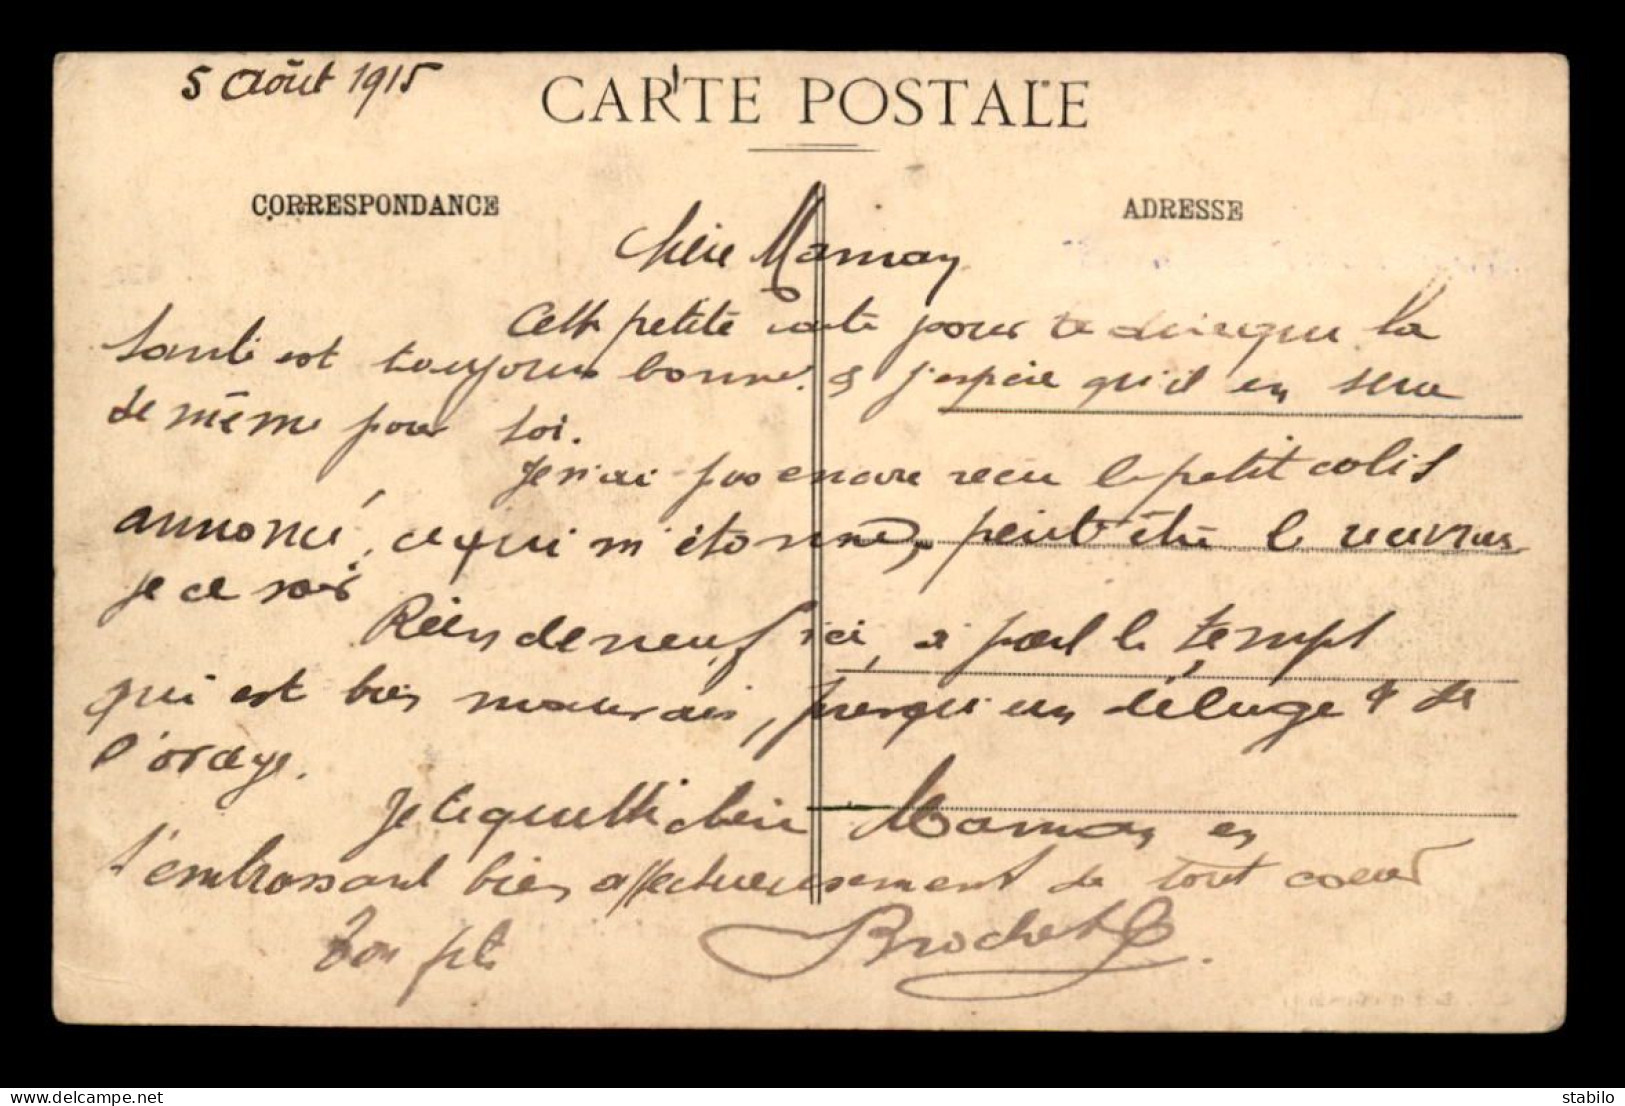 5 Août 1915
CARTE POSTALE
CORRESPONDANCE
ADRESSE
Chère Maman
Cette petite carte pour te dire que la
santé est toujours bonne & j'espère qu'il en sera
de même pour toi.
Je n'ai pas encore reçu le petit colis
annoncé, ce qui m'étonne, peut être le recevrai
je ce soir
Rien de neuf ici, à part le temps
qui est bien mauvais, presqu'un déluge & de
l'orage.
Je te quitte chère Maman en
t'embrassant bien affectueusement de tout coeur
Ton fils
Brochet
delcampe.net
stabilo